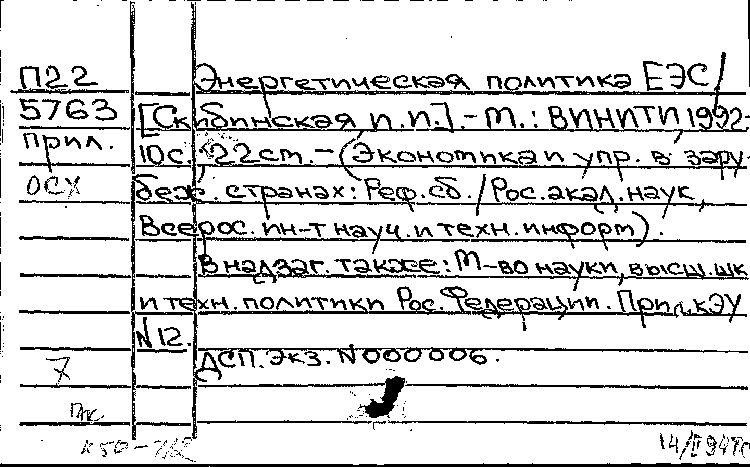 П22 Энергетическая политика ЕЭС/
5763 [Скибинская И.И.].-М.: ВИНИТИ, 1992-
прил. 10с., 22см.-(Экономика и упр. в зару-
ОСХ беж. странах: Реф.сб./Рос.акад.наук,
Всерос. ин-т науч. и техн. информ).
В надзаг. также: М-во науки, высш. шк
и техн. политики Рос. Федерации. Прил. к ЭУ
N12.
ДСП. Экз. N000006.
7
14/II 94